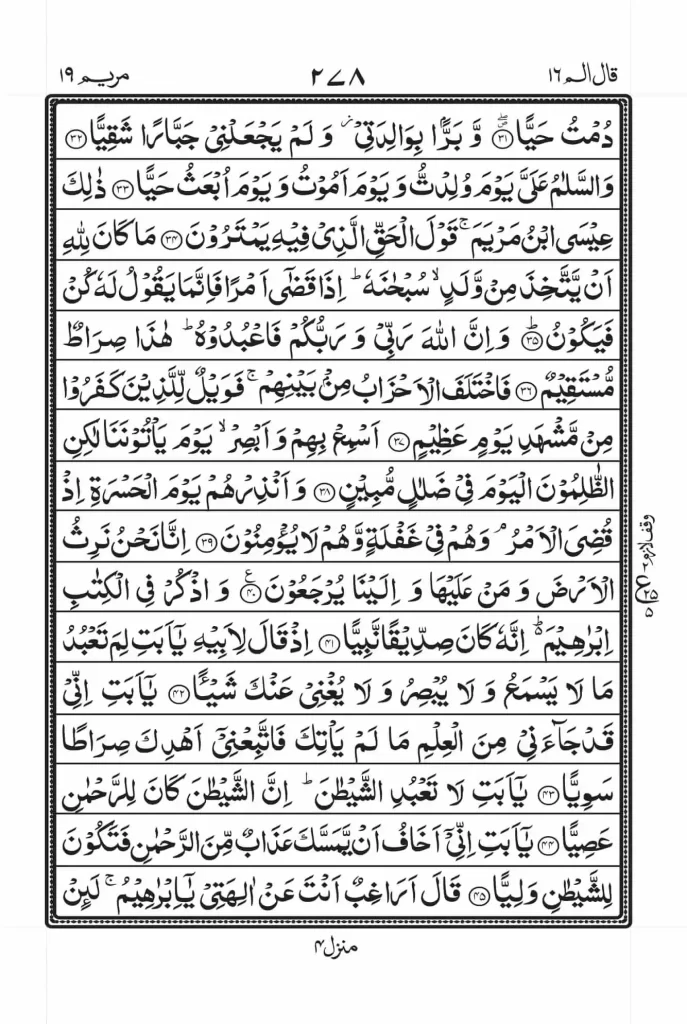 قال الم ١٦
٢٧٨
مريم ١٩
دُمْتُ حَيًّا ۖ۝٣١ وَّ بَرًّۢا بِوَالِدَتِیْ ؗ وَ لَمْ یَجْعَلْنِیْ جَبَّارًا شَقِیًّا ۝٣٢
وَالسَّلٰمُ عَلَیَّ یَوْمَ وُلِدْتُّ وَ یَوْمَ اَمُوْتُ وَ یَوْمَ اُبْعَثُ حَیًّا ۝٣٣ ذٰلِكَ
عِیْسَی ابْنُ مَرْیَمَ ۚ قَوْلَ الْحَقِّ الَّذِیْ فِیْهِ یَمْتَرُوْنَ ۝٣٤ مَا كَانَ لِلّٰهِ
اَنْ یَّتَّخِذَ مِنْ وَّلَدٍ ۙ سُبْحٰنَهٗ ؕ اِذَا قَضٰۤی اَمْرًا فَاِنَّمَا یَقُوْلُ لَهٗ كُنْ
فَیَكُوْنُ ؕ۝٣٥ وَ اِنَّ اللّٰهَ رَبِّیْ وَ رَبُّكُمْ فَاعْبُدُوْهُ ؕ هٰذَا صِرَاطٌ
مُّسْتَقِیْمٌ ۝٣٦ فَاخْتَلَفَ الْاَحْزَابُ مِنْۢ بَیْنِهِمْ ۚ فَوَیْلٌ لِّلَّذِیْنَ كَفَرُوْا
مِنْ مَّشْهَدِ یَوْمٍ عَظِیْمٍ ۝٣٧ اَسْمِعْ بِهِمْ وَ اَبْصِرْ ۙ یَوْمَ یَاْتُوْنَنَا لٰكِنِ
الظّٰلِمُوْنَ الْیَوْمَ فِیْ ضَلٰلٍ مُّبِیْنٍ ۝٣٨ وَ اَنْذِرْهُمْ یَوْمَ الْحَسْرَةِ اِذْ
قُضِیَ الْاَمْرُ ۘ وَهُمْ فِیْ غَفْلَةٍ وَّهُمْ لَا یُؤْمِنُوْنَ ۝٣٩ اِنَّا نَحْنُ نَرِثُ
الْاَرْضَ وَ مَنْ عَلَیْهَا وَ اِلَیْنَا یُرْجَعُوْنَ ۝٤٠ ع وَ اذْكُرْ فِی الْكِتٰبِ
اِبْرٰهِیْمَ ؕ۬ اِنَّهٗ كَانَ صِدِّیْقًا نَّبِیًّا ۝٤١ اِذْ قَالَ لِاَبِیْهِ یٰۤاَبَتِ لِمَ تَعْبُدُ
مَا لَا یَسْمَعُ وَ لَا یُبْصِرُ وَ لَا یُغْنِیْ عَنْكَ شَیْـًٔا ۝٤٢ یٰۤاَبَتِ اِنِّیْ
قَدْ جَآءَنِیْ مِنَ الْعِلْمِ مَا لَمْ یَاْتِكَ فَاتَّبِعْنِیْۤ اَهْدِكَ صِرَاطًا
سَوِیًّا ۝٤٣ یٰۤاَبَتِ لَا تَعْبُدِ الشَّیْطٰنَ ؕ اِنَّ الشَّیْطٰنَ كَانَ لِلرَّحْمٰنِ
عَصِیًّا ۝٤٤ یٰۤاَبَتِ اِنِّیْۤ اَخَافُ اَنْ یَّمَسَّكَ عَذَابٌ مِّنَ الرَّحْمٰنِ فَتَكُوْنَ
لِلشَّیْطٰنِ وَلِیًّا ۝٤٥ قَالَ اَرَاغِبٌ اَنْتَ عَنْ اٰلِهَتِیْ یٰۤاِبْرٰهِیْمُ ۚ لَىِٕنْ
وقف لازم
منزل ٤